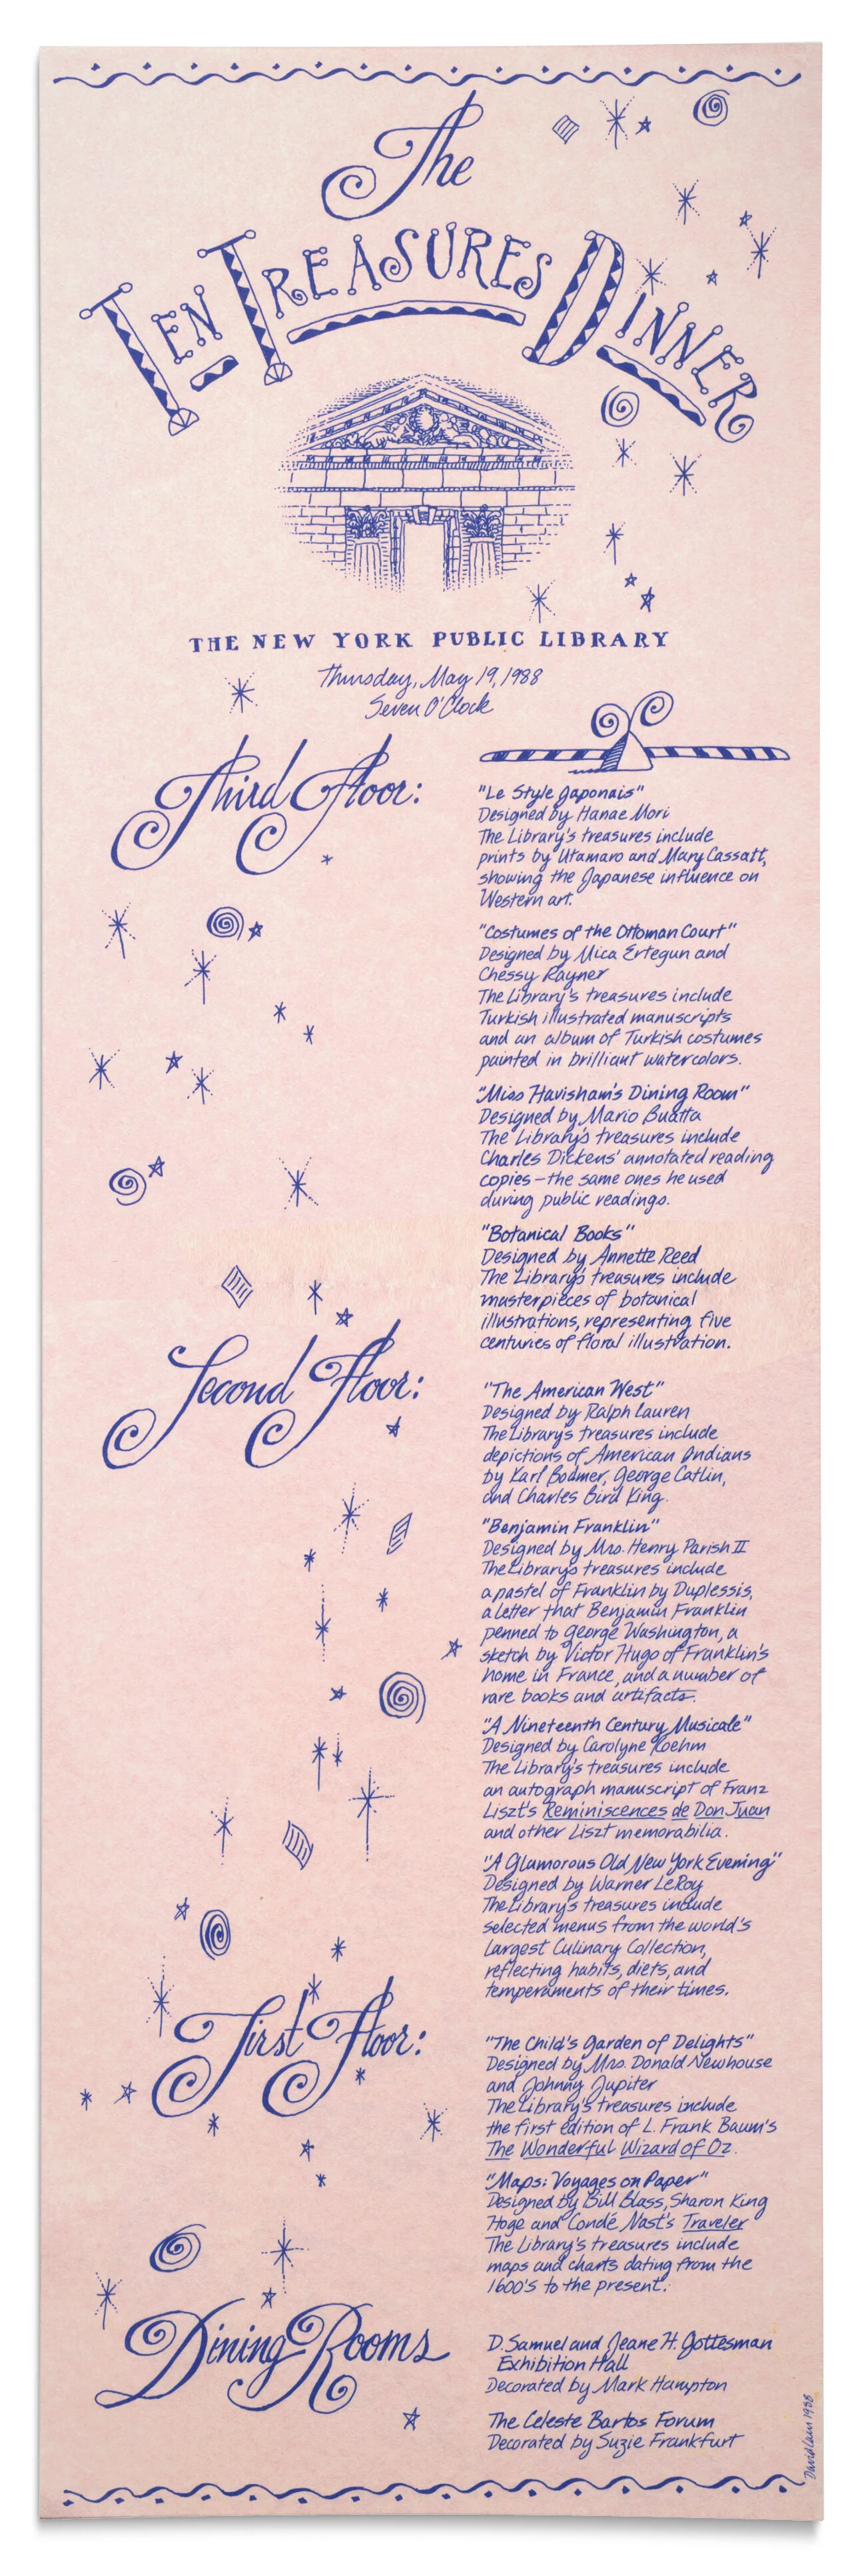 The
TEN TREASURES DINNER
THE NEW YORK PUBLIC LIBRARY
Thursday, May 19, 1988
Seven O'Clock
Third Floor:
"Le Style Japonais"
Designed by Hanae Mori
The Library's treasures include
prints by Utamaro and Mary Cassatt,
showing the Japanese influence on
Western art.
"Costumes of the Ottoman Court"
Designed by Mica Ertegun and
Chessy Rayner
The Library's treasures include
Turkish illustrated manuscripts
and an album of Turkish costumes
painted in brilliant watercolors.
"Miss Havisham's Dining Room"
Designed by Mario Buatta
The Library's treasures include
Charles Dickens' annotated reading
copies – the same ones he used
during public readings.
"Botanical Books"
Designed by Annette Reed
The Library's treasures include
masterpieces of botanical
illustrations, representing five
centuries of floral illustration.
Second Floor:
"The American West"
Designed by Ralph Lauren
The Library's treasures include
depictions of American Indians
by Karl Bodmer, George Catlin,
and Charles Bird King.
"Benjamin Franklin"
Designed by Mrs. Henry Parish II
The Library's treasures include
a pastel of Franklin by Duplessis,
a letter that Benjamin Franklin
penned to George Washington, a
sketch by Victor Hugo of Franklin's
home in France, and a number of
rare books and artifacts.
"A Nineteenth Century Musicale"
Designed by Carolyne Roehm
The Library's treasures include
an autograph manuscript of Franz
Liszt's Reminiscences de Don Juan
and other Liszt memorabilia.
"A Glamorous Old New York Evening"
Designed by Warner LeRoy
The Library's treasures include
selected menus from the world's
Largest Culinary Collection,
reflecting habits, diets, and
temperaments of their times.
First Floor:
"The Child's Garden of Delights"
Designed by Mrs. Donald Newhouse
and Johnny Jupiter
The Library's treasures include
the first edition of L. Frank Baum's
The Wonderful Wizard of Oz.
"Maps: Voyages on Paper"
Designed by Bill Blass, Sharon King
Hoge and Condé Nast's Traveler
The Library's treasures include
maps and charts dating from the
1600's to the present.
Dining Rooms
D. Samuel and Jeane H. Gottesman
Exhibition Hall
Decorated by Mark Hampton
The Celeste Bartos Forum
Decorated by Suzie Frankfurt
David 1988